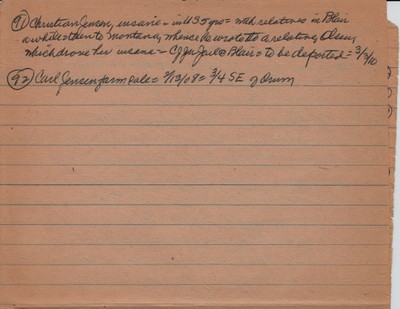 91) Christian Jensen, insane = in U S 5 yrs = with relatives in Blair
a while = then to Montana, whence he wrote to a relative, Olsen,
which drove her insane = Co Jail @ Blair = to be deported = 3/3/10
92) Carl Jensen farm sale = 2/13/08 = 3/4 SE of Orum